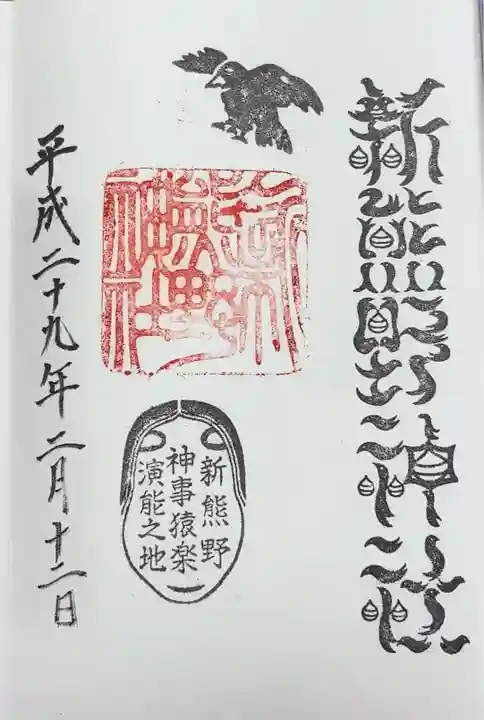 新熊野神社
新熊野神社
新熊野
神事猿楽
演能之地
平成二十九年二月十二日